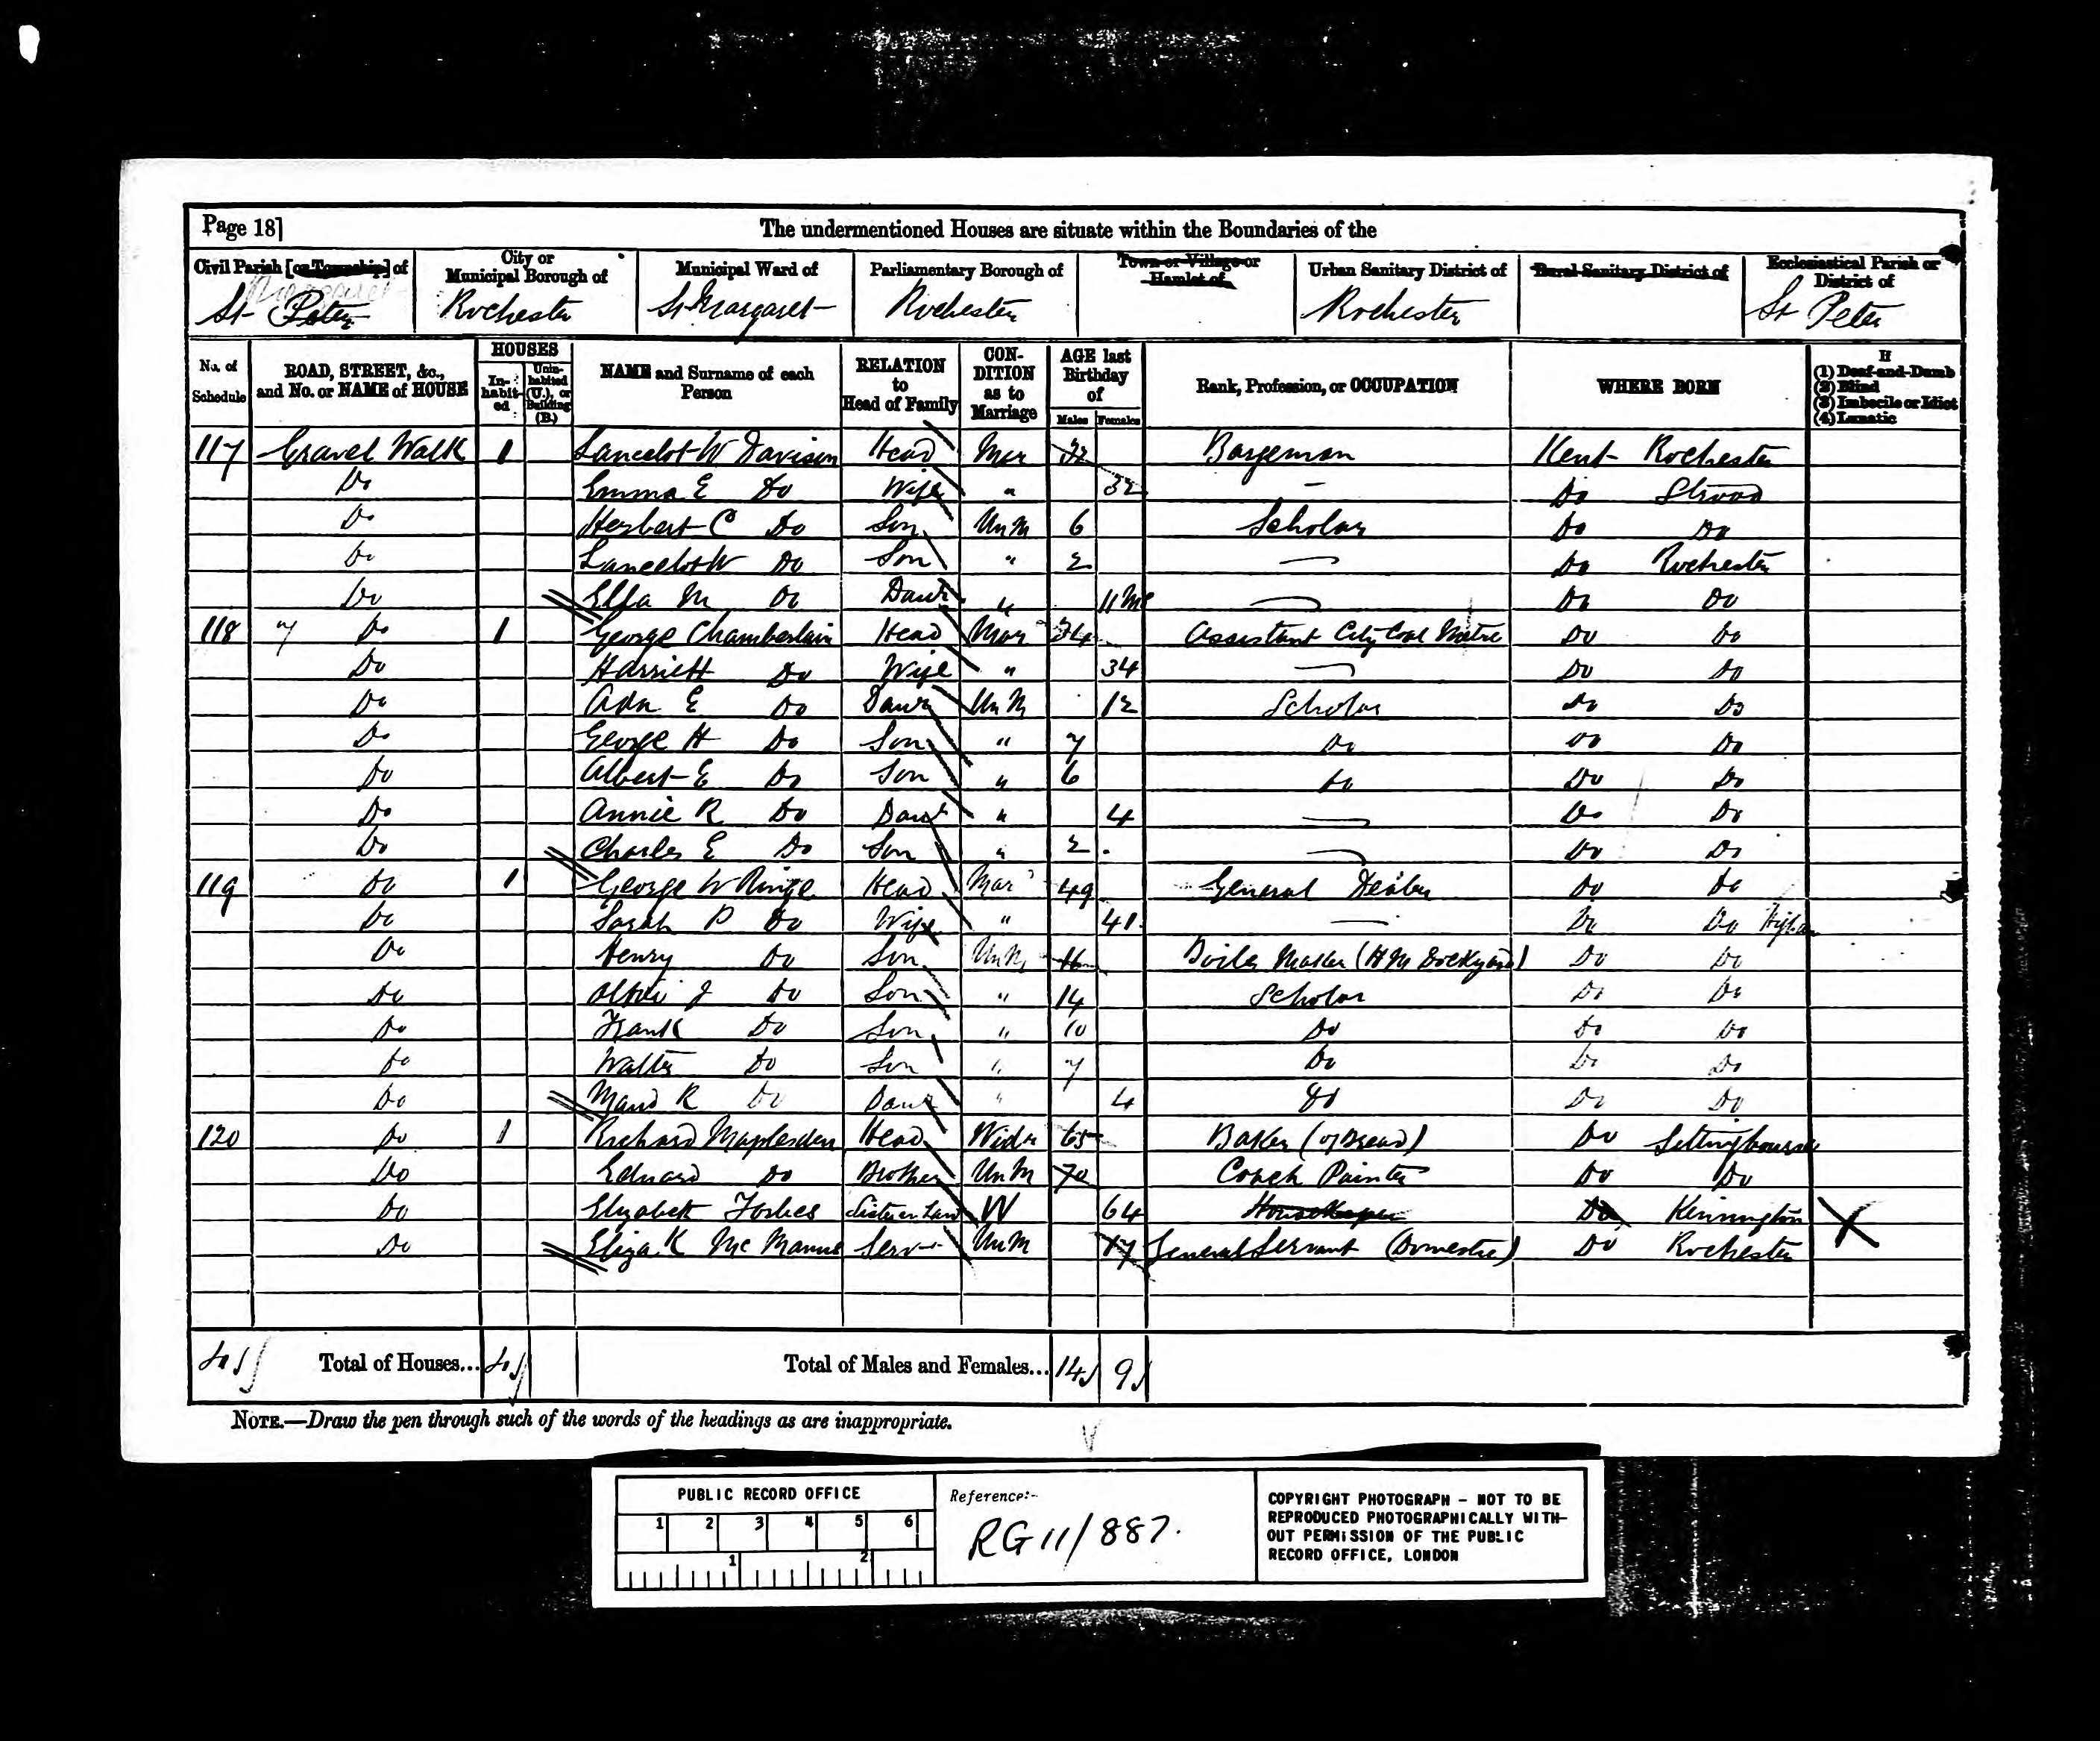 Page 18]
The undermentioned Houses are situate within the Boundaries of the
Civil Parish [or Township] of
City or Municipal Borough of
Municipal Ward of
Parliamentary Borough of
Town or Village or Hamlet of
Urban Sanitary District of
Rural Sanitary District of
Ecclesiastical Parish or District of
Margaret
St Peter
Rochester
St Margaret
Rochester
Rochester
St Peter
No. of Schedule
ROAD, STREET, &c., and No. or NAME of HOUSE
HOUSES
In-habit-ed
Unin-habited (U.), or Building (B.)
NAME and Surname of each Person
RELATION to Head of Family
CON-DITION as to Marriage
AGE last Birthday of
Males Females
Rank, Profession, or OCCUPATION
WHERE BORN
(1) Deaf-and-Dumb
(2) Blind
(3) Imbecile or Idiot
(4) Lunatic
117 Gravel Walk 1 Lancelot W Davison Head Mar 32 Bargeman Kent Rochester
Do Emma E Do Wife " 32 — Do Strood
Do Herbert C Do Son UnM 6 Scholar Do Do
Do Lancelot W Do Son " 2 — Do Rochester
Do Ella M Do Daur " 11 Mo — Do Do
118 Do 1 George Chamberlain Head Mar 34 Assistant City Coal Metre Do Do
Do Harriett Do Wife " 34 — Do Do
Do Ada E Do Daur UnM 12 Scholar Do Do
Do George H Do Son " 7 Do Do Do
Do Albert E Do Son " 6 Do Do Do
Do Annie R Do Daur " 4 — Do Do
Do Charles E Do Son " 2 — Do Do
119 Do 1 George W Head Mar 49 General Dealer Do Do
Do Sarah Do Wife " 41 — Do Do
Do Henry Do Son UnM 16 Boiler Maker (H M Dockyard) Do Do
Do J Do Son " 14 Scholar Do Do
Do Frank Do Son " 10 Do Do Do
Do Walter Do Son " 7 Do Do Do
Do Maud R Do Daur " 4 Do Do Do
120 Do 1 Richard Maplesden Head Widr 65 Baker (of Bread) Do Sittingbourne
Do Edward Do Brother UnM 70 Coach Painter Do Do
Do Elizabeth Forbes Sister in Law W 64 Housekeeper Do Kennington
Do Eliza K Mc Manus Serv UnM 17 General Servant (Domestic) Do Rochester
4 Total of Houses... 4 Total of Males and Females... 14 9
NOTE.—Draw the pen through such of the words of the headings as are inappropriate.
PUBLIC RECORD OFFICE
1 2 3 4 5 6
1 2
Reference:-
RG 11/887.
COPYRIGHT PHOTOGRAPH - NOT TO BE
REPRODUCED PHOTOGRAPHICALLY WITH-
OUT PERMISSION OF THE PUBLIC
RECORD OFFICE, LONDON